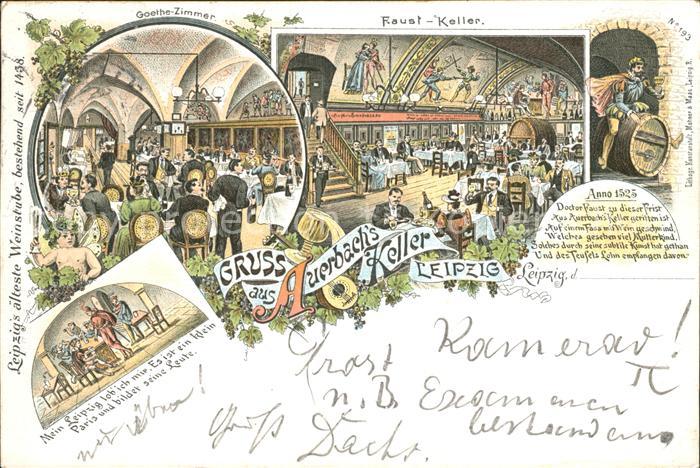 Goethe-Zimmer.
Faust-Keller.
No 193
Leipzig's älteste Weinstube, bestehend seit 1438.
Anno 1525
Doctor Faust zu dieser Frist
Aus Auerbach's Keller geritten ist
Auf einem Fass mit Wein geschwind,
Welches gesehen viel Mutterkind.
Solches durch seine subtile Kunst hat gethan
Und des Teufels Lohn empfangen davon.
GRUSS
aus
Auerbach's
Keller
LEIPZIG
Leipzig, d
Mein Leipzig lob ich mir, Es ist ein klein
Paris und bildet seine Leute.
Prost Kamerad!
n. B. Examen
bestanden
Gruß
Dachs.